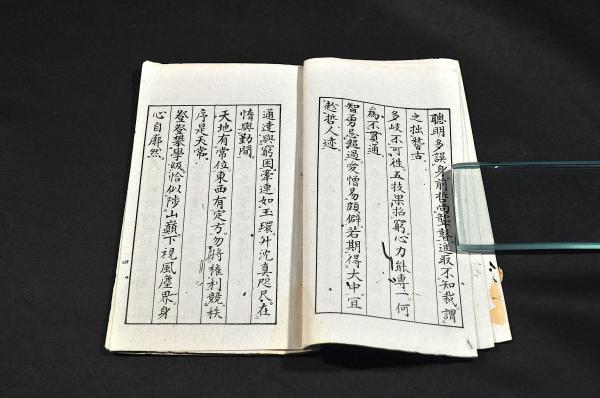 聰明多誤身前哲尚龍鍾進取不知裁謂
之拙瞽古
多歧不可徃五技果招窮心力能專一何
為不貫通
智勇忌題過愛憎易頗僻若期得大中宜
趁哲人迹
通達與窮困牽連如玉環升沈真咫尺在
惰與勤間
天地有常位東西有定方勿將權利競秩
序是天常
登登攀學級恰似陟山巔下視風塵界身
心自廓然
四